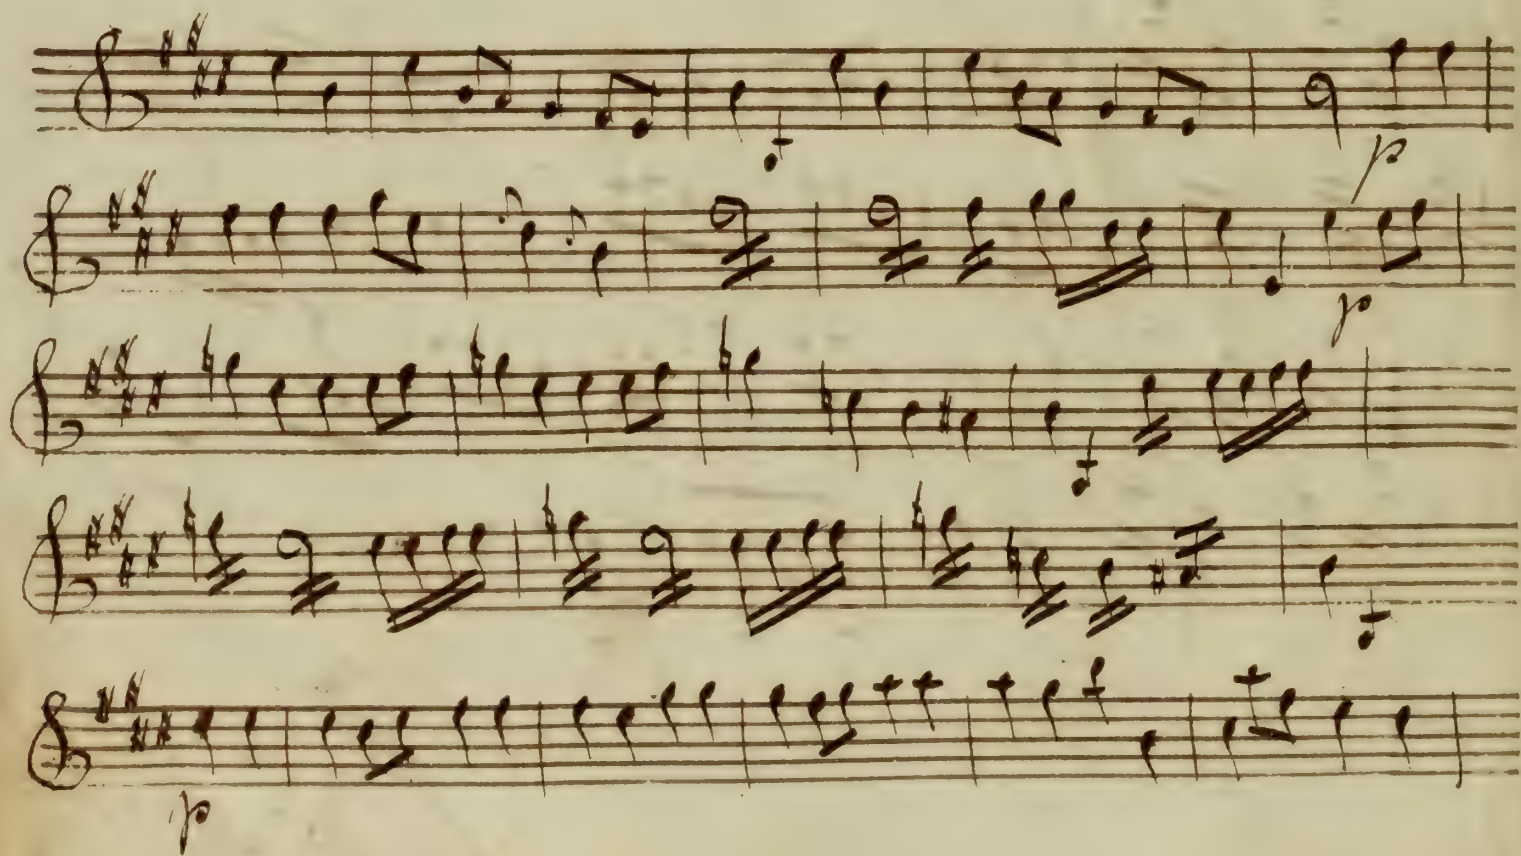 p
p
p